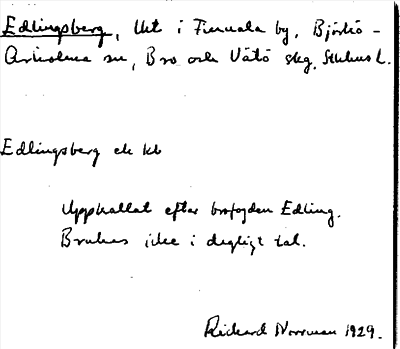 Edlingsberg, Utt i Finnala by, Björkö -
Arholma sn, Bro och Vätö skg. Sthlms L.
Edlingsberg ek kb
Uppkallat efter brofogden Edling.
Brukas icke i dagligt tal.
Rickard Norrman 1929.